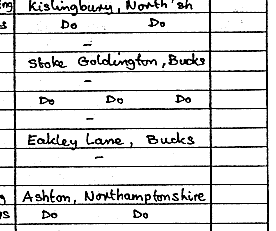 ng Kislingbury, North'sh
s Do Do
-
Stoke Goldington, Bucks
-
Do Do Do
-
Eakley Lane, Bucks
-
g Ashton, Northamptonshire
gs Do Do